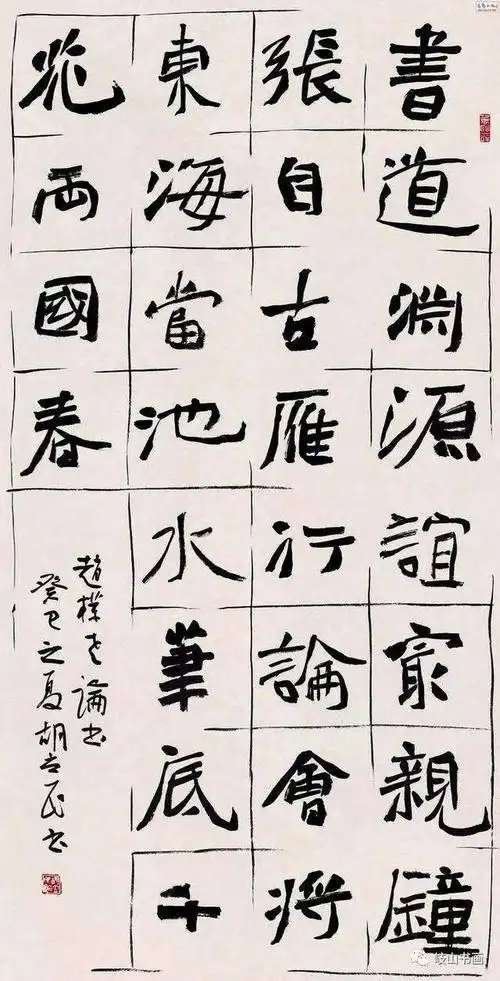 書道淵源誼最親鐘
張自古雁行論會將
東海當池水筆底千
花兩國春
趙樸老論書
癸巳之夏胡立民書
岐山书画